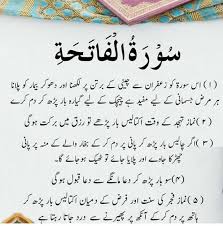 سُوْرَةُ الْفَاتِحَة
(۱) اس سورۃ کو زعفران سے چینی کے برتن پر لکھنا اور دھو کر بیمار کو پلانا
ہر مرض جسمانی کے لیے مفید ہے چیچک کے لیے گیارہ بار پڑھ کر دم کرے
(۲) نماز تہجد کے وقت اکتالیس بار پڑھے تو رزق میں برکت ہوگی
(۳) اگر چالیس بار پڑھ کر پانی پر دم کر کے بخار والے کے منہ پر پانی
چھڑکا جائے اور پلایا جائے تو ٹھیک ہو جائے گا۔
(۴) سو بار پڑھ کر دعا مانگے سے دعا قبول ہوگی
(۵) نماز فجر کی سنت اور فرض کے درمیان اکتالیس بار پڑھ کر
ہاتھ پر دم کر کے آنکھ پر پھیرنے سے درد جاتا رہتا ہے